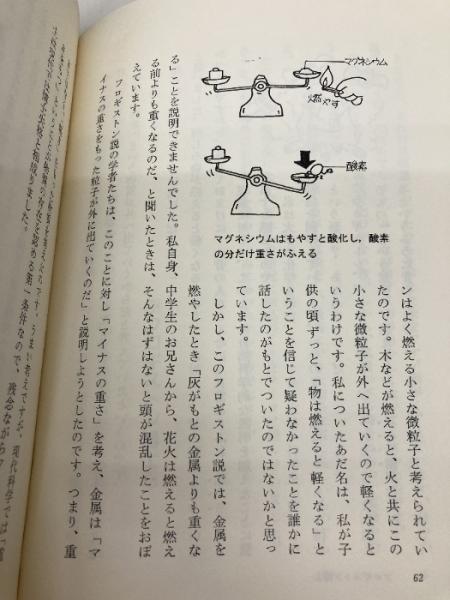 マグネシウム
燃やす
酸素
マグネシウムはもやすと酸化し，酸素
の分だけ重さがふえる
ンはよく燃える小さな微粒子と考えられてい
たのです。木などが燃えると、火と共にこの
小さな微粒子が外へ出ていくので軽くなると
いうわけです。私についたあだ名は、私が子
供の頃ずっと、「物は燃えると軽くなる」と
いうことを信じて疑わなかったことを誰かに
話したのがもとでついたのではないかと思っ
ています。
しかし、このフロギストン説では、金属を
燃やしたとき「灰がもとの金属よりも重くな
る」ことを説明できませんでした。私自身、中学生のお兄さんから、花火は燃えると燃え
る前よりも重くなるのだ、と聞いたときは、そんなはずはないと頭が混乱したことをおぼ
えています。
フロギストン説の学者たちは、このことに対し「マイナスの重さ」を考え、金属は「マ
イナスの重さをもった粒子が外に出ていくのだ」と説明しようとしたのです。つまり、重
62